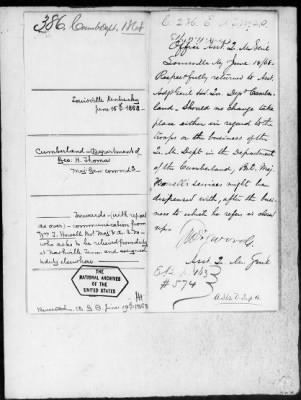 386. Cumb. Dept. 1868
Louisville Kentucky
June 15th 1868
Cumberland - Department of
Geo. H. Thomas
Maj. Gen. commd'g
Forwards (with report
as over) - communication from
Wm J. Howell Bvt Maj &
who asks to be relieved from duty
at Nashville Tenn and assigned
to duty elsewhere
THE
NATIONAL ARCHIVES
OF THE
UNITED STATES
June 19th 1868
Office Asst Q. M. Genl
Louisville Ky June 10/68.
Respectfully returned to Asst.
Adjt Genl Hd. Qrs Dept Cumber-
land. Should no change take
place either in regard to the
troops or the business of the
Q. M. Dept in the Department
of the Cumberland, Bvt. Maj.
Howell's services might be
dispensed with, after the busi-
ness to which he refers is closed
up.
Asst Q. M. Genl
E.B.
#574